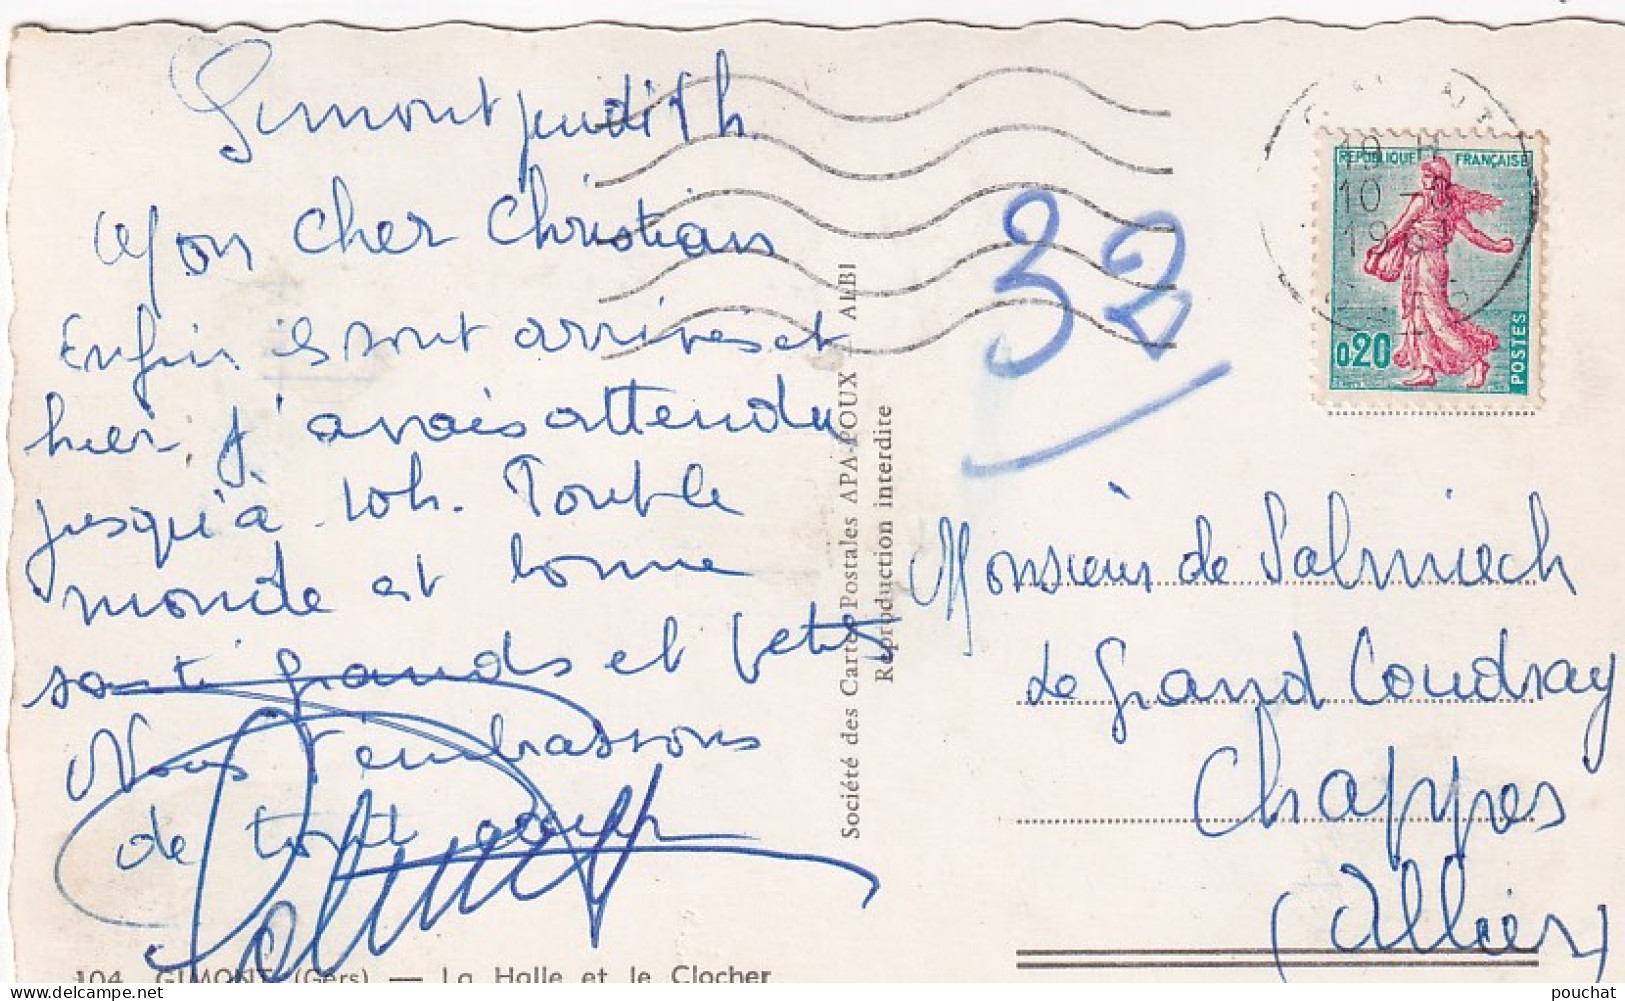 Gimont jeudi 1h
Mon cher Christian
Enfin ils sont arrivés et
hier, j'avais attendu
jusqu'à 10h. Tout le
monde est bonne
santé grands et petits
Nous t'embrassons
de tout coeur
104 GIMONT (Gers) — La Halle et le Clocher
Société des Cartes Postales APA-POUX ALBI
Reproduction interdite
32
19 H
10 - 8
1961
GERS
RÉPUBLIQUE FRANÇAISE
0,20
POSTES
Monsieur de Salmiech
Le Grand Coudray
Chappes
(Allier)
pouchat